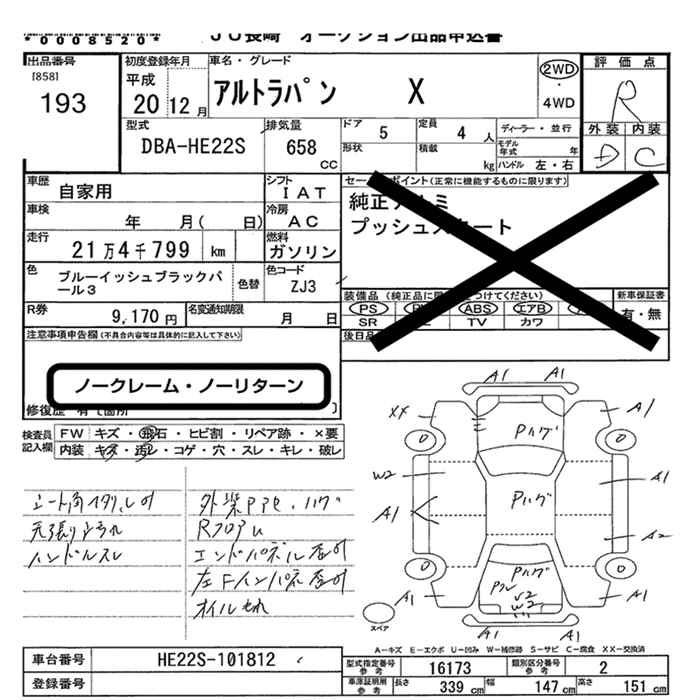 *0008520*
JU長崎 オークション出品申込書
出品番号
[858]
193
初度登録年月
平成
20 12月
車名・グレード
アルトラパン X
2WD
・
4WD
評価点
R
外装 内装
D C
型式
DBA-HE22S
排気量
658
CC
ドア 5
形状
定員 4 人
積載 kg
ディーラー・並行
モデル年式 年
ハンドル 左・右
車歴
自家用
シフト
IAT
車検
年 月( 日)
冷房
AC
走行
21万4千799 km
燃料
ガソリン
色
ブルーイッシュブラックパール3
色替
色コード
ZJ3
R券
9,170円
名変通知期限
月 日
セールスポイント(正常に機能するものに限ります)
純正アルミ
プッシュスタート
装備品(純正品に限り○をつけてください)
PS ABS エアB
SR TV カワ
新車保証書
有・無
後日品
注意事項申告欄(不具合内容等は具体的に記入して下さい)
ノークレーム・ノーリターン
修復歴 有
箇所
検査員記入欄
FW キズ・飛石・ヒビ割・リペア跡・×要
内装 キズ・汚レ・コゲ・穴・スレ・キレ・破レ
シート角イタミ
天張り
ハンドルスレ
外装
Rフロア
エンドパネル
左Fインパネ
オイルもれ
A1 A1
XX A1
Pハゲ
W2 Pハゲ A1
A1 A2
Pハゲ
W2
A1 A1
A1 A1
スペア
A-キズ E-エクボ U-凹み W-補修跡 S-サビ C-腐食 XX-交換済
車台番号
HE22S-101812
登録番号
型式指定番号 参考 16173
類別区分番号 参考 2
車庫証明用 参考 長さ 339 cm 幅 147 cm 高さ 151 cm